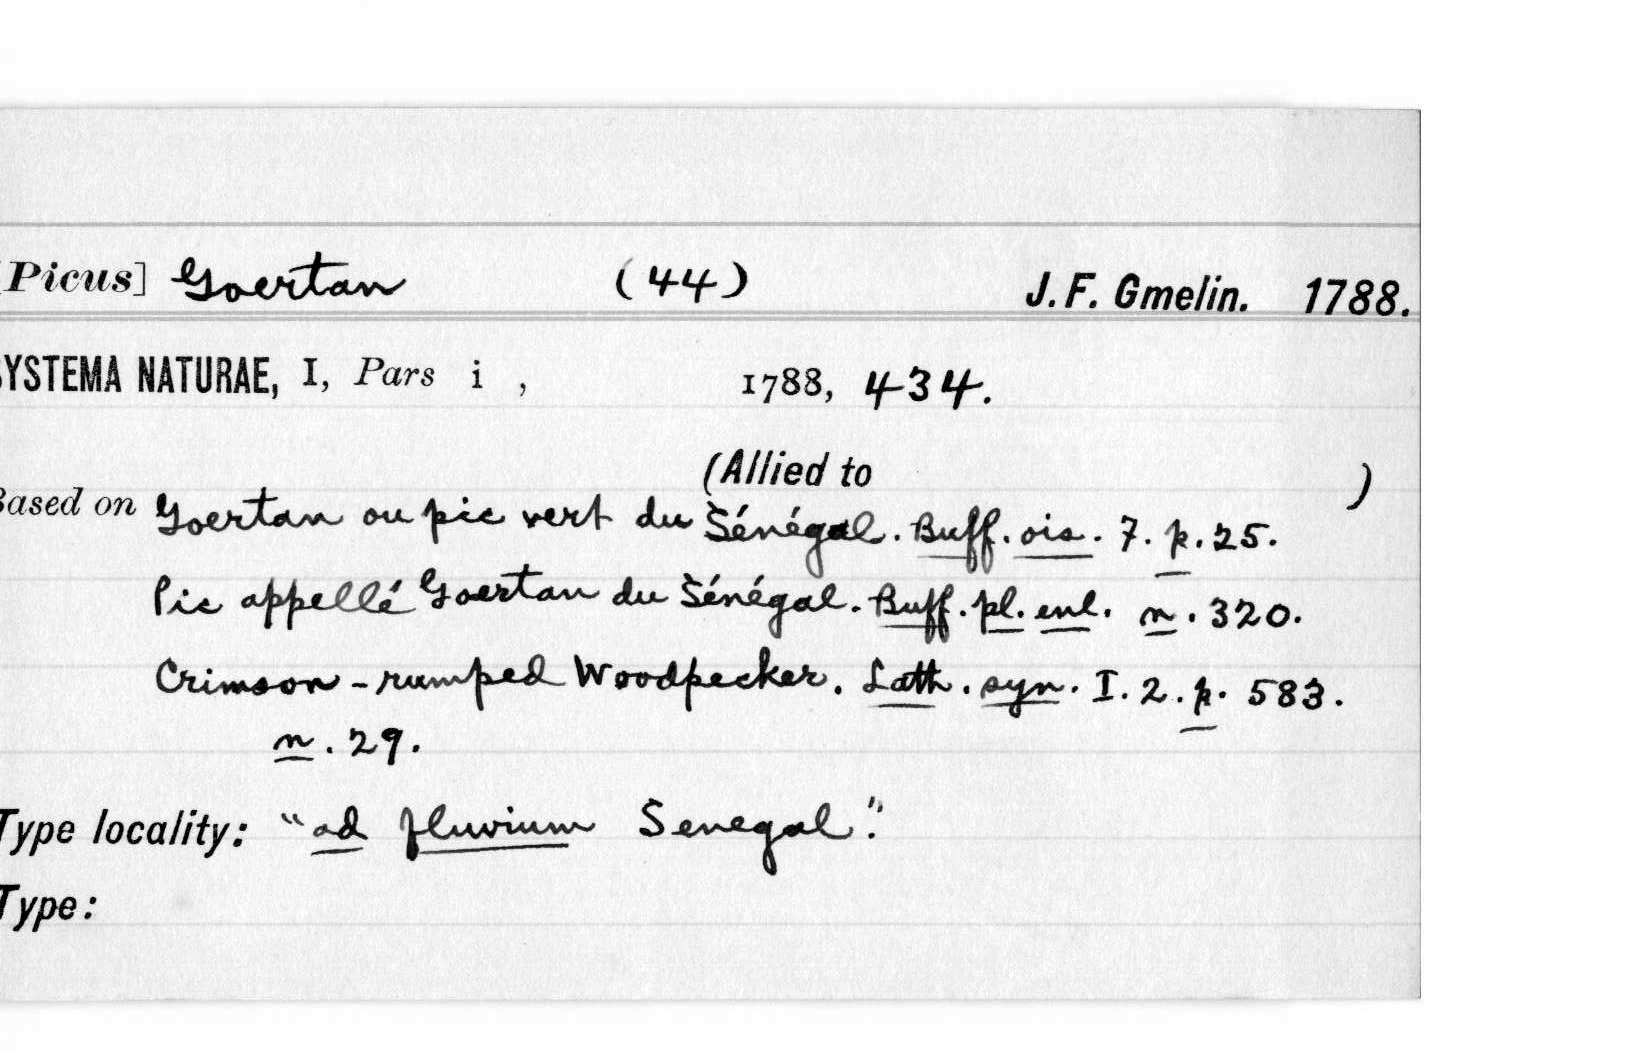 [Picus] Goertan (44) J. F. Gmelin. 1788.
SYSTEMA NATURAE, I, Pars i , 1788, 434.
(Allied to )
Based on Goertan ou pic vert du Sénégal. Buff. ois. 7. p. 25.
Pic appellé Goertan du Sénégal. Buff. pl. enl. n. 320.
Crimson-rumped Woodpecker. Lath. syn. I. 2. p. 583.
n. 29.
Type locality: "ad fluvium Senegal".
Type: